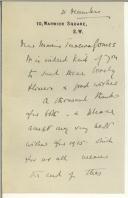 31 December
10, WARWICK SQUARE,
S.W.
Dear Mr
It is indeed kind of you
to send those lovely
flowers & good wishes
A thousand thanks
for both - & please
accept my very best
wishes for 1915. which
for us all means
the end of this